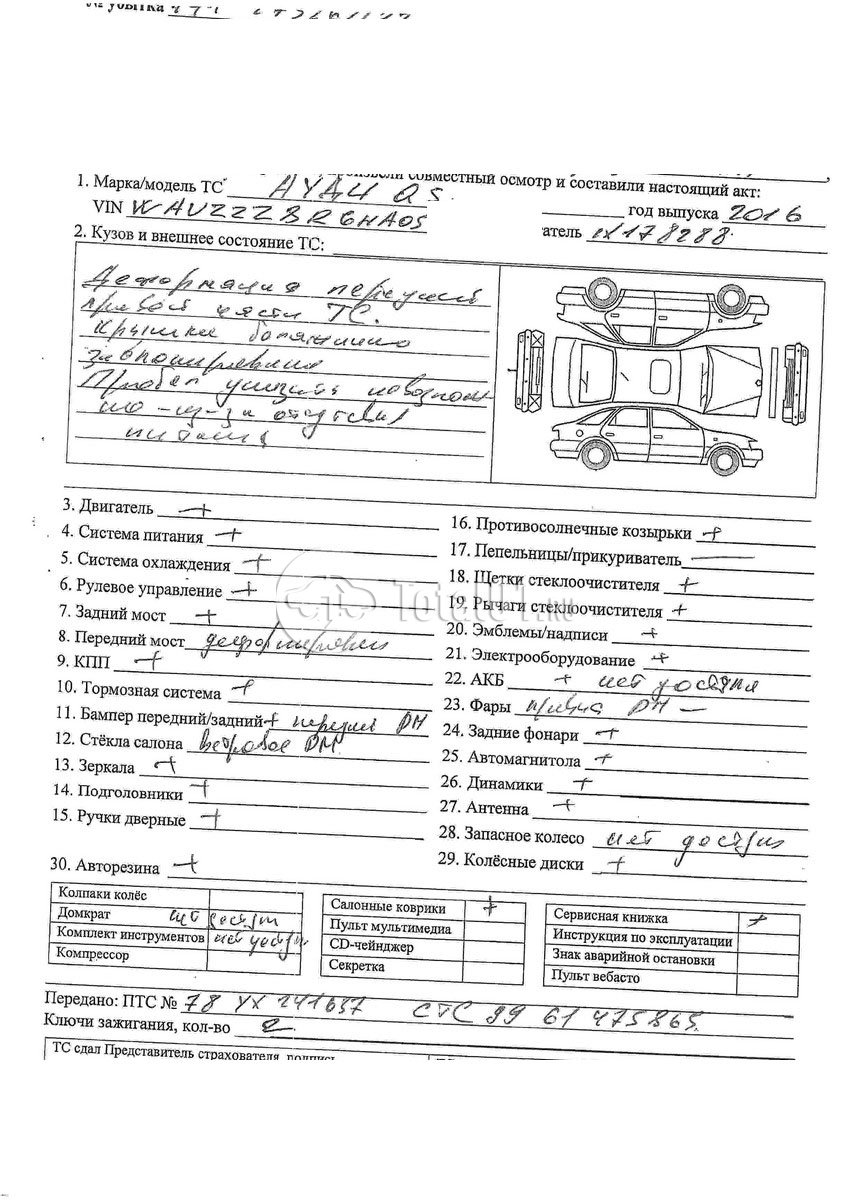 № убытка
произвели совместный осмотр и составили настоящий акт:
1. Марка/модель ТС АУДИ Q5.
VIN WAUZZZ8R6HA05 год выпуска 2016
атель
2. Кузов и внешнее состояние ТС:
Деформация передней
правой части ТС.
Крышка багажника
заблокирована
Пробег узнать невозмож
но из-за отсутствия
питания
3. Двигатель +
4. Система питания +
5. Система охлаждения +
6. Рулевое управление +
7. Задний мост +
8. Передний мост деформирован
9. КПП +
10. Тормозная система +
11. Бампер передний/задний + передний РМ
12. Стёкла салона ветровое РМ
13. Зеркала +
14. Подголовники +
15. Ручки дверные +
16. Противосолнечные козырьки +
17. Пепельницы/прикуриватель —
18. Щетки стеклоочистителя +
19. Рычаги стеклоочистителя +
20. Эмблемы/надписи +
21. Электрооборудование +
22. АКБ + нет доступа
23. Фары правая РМ —
24. Задние фонари +
25. Автомагнитола +
26. Динамики +
27. Антенна +
28. Запасное колесо нет доступа
29. Колёсные диски +
30. Авторезина +
Колпаки колёс
Домкрат нет доступа
Комплект инструментов нет доступа
Компрессор
Салонные коврики +
Пульт мультимедиа
CD-чейнджер
Секретка
Сервисная книжка +
Инструкция по эксплуатации
Знак аварийной остановки
Пульт вебасто
Передано: ПТС № 78 УХ 241637 СТС 99 61 475865.
Ключи зажигания, кол-во 2
ТС сдал Представитель страхователя, подпись
Total01.RU